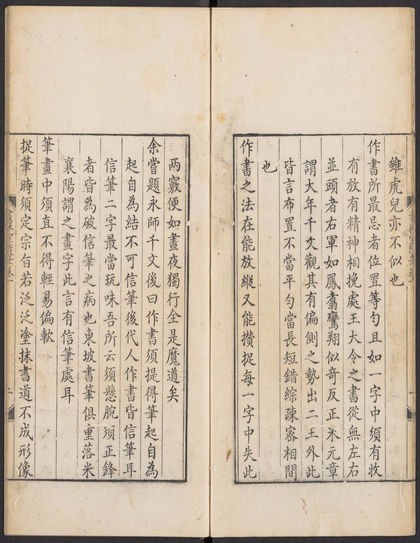 雖虎兒亦不似也
作書所最忌者位置等勻且如一字中須有收
有放有精神相挽處王大令之書從無左右
並頭者右軍如鳳翥鸞翔似奇反正米元章
謂大年千文觀其有偏側之勢出二王外此
皆言布置不當平勻當長短錯綜疎密相間
也
作書之法在能放縱又能攢捉每一字中失此
兩竅便如晝夜獨行全是魔道矣
余嘗題永師千文後曰作書須提得筆起自為
起自為結不可信筆後代人作書皆信筆耳
信筆二字最當玩味吾所云須懸腕須正鋒
者皆為破信筆之病也東坡書筆俱重落米
襄陽謂之畫字此言有信筆處耳
筆畫中須直不得輕易偏軟
捉筆時須定宗旨若泛泛塗抹書道不成形像